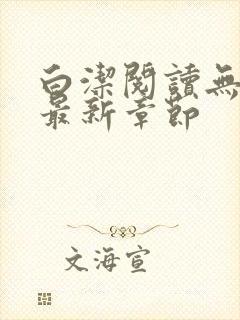 白潔閱讀無
最新章節
文海宣